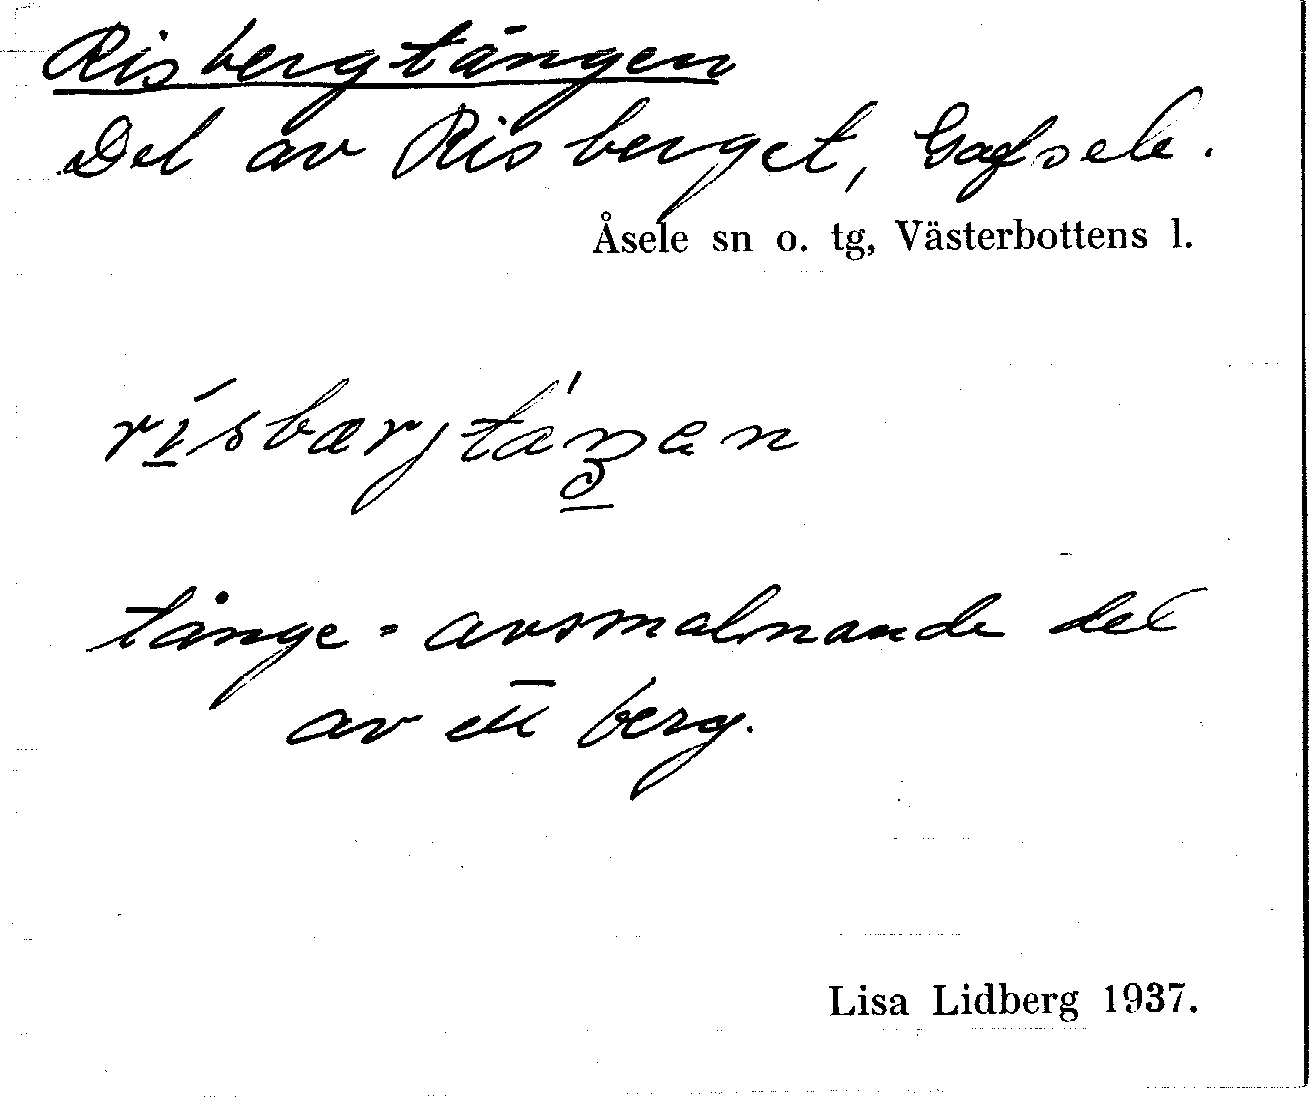 Risbergtången
Del av Risberget, Gafsele.
Åsele sn o. tg, Västerbottens l.
tånge = avsmalnande del
av ett berg.
Lisa Lidberg 1937.